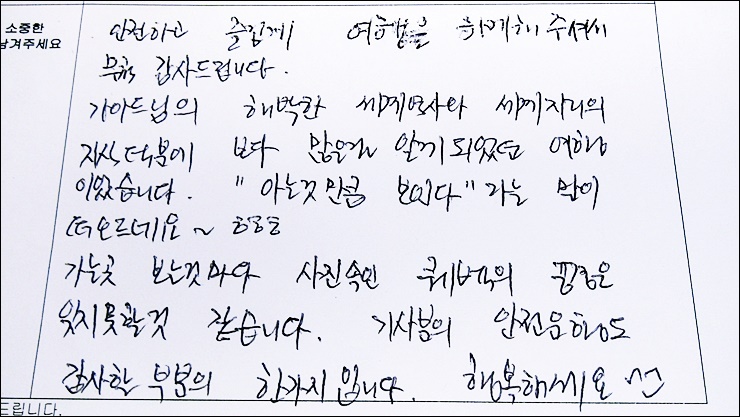 소중한
남겨주세요
안전하고 즐겁게 여행을 함께해 주셔서
무척 감사드립니다.
가이드님의 해박한 세계역사와 세계지리의
지식 덕분에 보다 많은걸 알게 되었던 여행
이었습니다. "아는것 만큼 보인다" 라는 말이
떠오르네요~ ㅎㅎㅎ
가는곳 보는것마다 사진속인 퀘백의 풍경은
잊지못할것 같습니다. 기사분의 안전운행도
감사한 부분의 한가지 입니다. 행복하세요 ^^
드립니다.